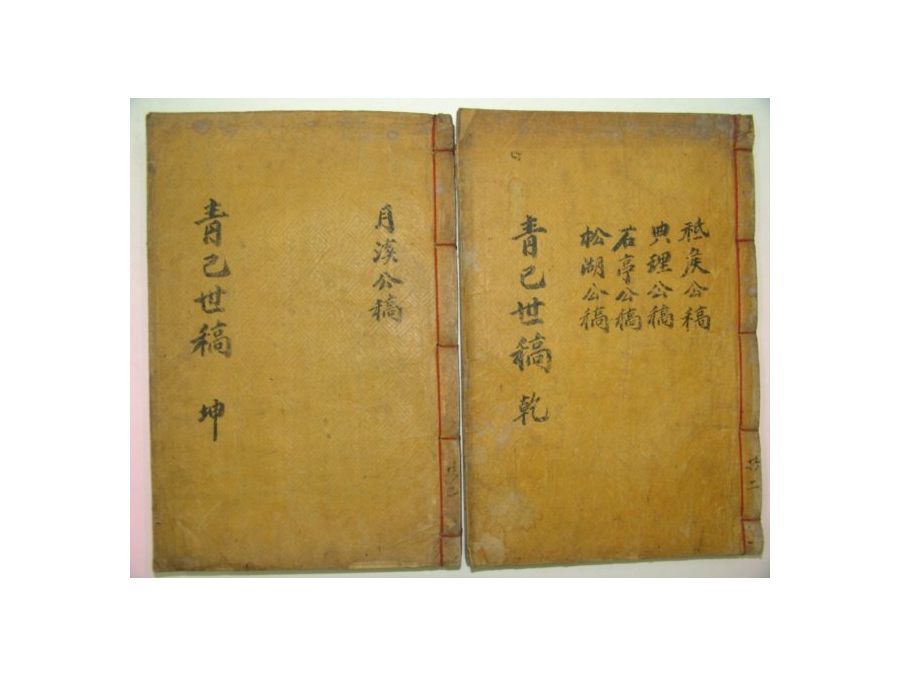 祗矦公稿
典理公稿
若亭公稿
松湖公稿
青己世稿 乾
共二
月溪公稿
青己世稿 坤
共二